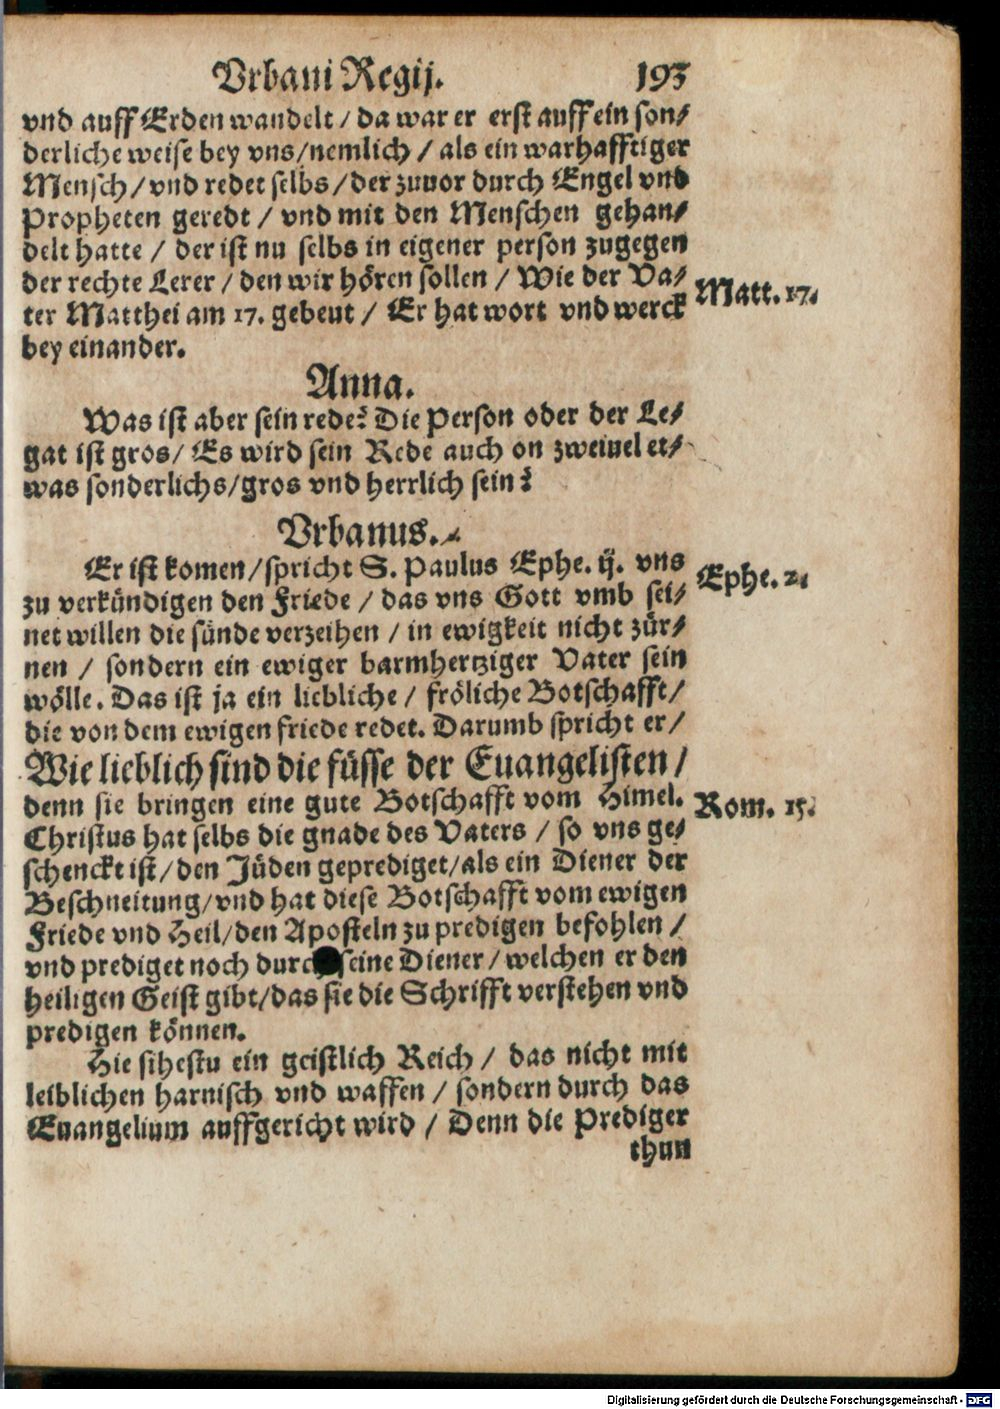 Vrbani Regij. 193
vnd auff Erden wandelt / da war er erst auff ein son⸗
derliche weise bey vns / nemlich / als ein warhafftiger
Mensch / vnd redet selbs / der zuuor durch Engel vnd
Propheten geredt / vnd mit den Menschen gehan⸗
delt hatte / der ist nu selbs in eigener person zugegen
der rechte Lerer / den wir hören sollen / Wie der Va⸗
ter Matthei am 17. gebeut / Er hat wort vnd werck
Matt. 17.
bey einander.
Anna.
Was ist aber sein rede? Die Person oder der Le⸗
gat ist gros / Es wird sein Rede auch on zweiuel et⸗
was sonderlichs / gros vnd herrlich sein?
Vrbanus.
Er ist komen / spricht S. Paulus Ephe. ij. vns
Ephe. 2.
zu verkündigen den Friede / das vns Gott vmb sei⸗
net willen die sünde verzeihen / in ewigkeit nicht zür⸗
nen / sondern ein ewiger barmhertziger Vater sein
wölle. Das ist ja ein liebliche / fröliche Botschafft /
die von dem ewigen friede redet. Darumb spricht er /
Wie lieblich sind die füsse der Euangelisten /
denn sie bringen eine gute Botschafft vom Himel.
Rom. 15.
Christus hat selbs die gnade des Vaters / so vns ge⸗
schenckt ist / den Jüden geprediget / als ein Diener der
Beschneitung / vnd hat diese Botschafft vom ewigen
Friede vnd Heil / den Aposteln zu predigen befohlen /
vnd prediget noch durch seine Diener / welchen er den
heiligen Geist gibt / das sie die Schrifft verstehen vnd
predigen können.
Hie sihestu ein geistlich Reich / das nicht mit
leiblichen harnisch vnd waffen / sondern durch das
Euangelium auffgericht wird / Denn die Prediger
thun
Digitalisierung gefördert durch die Deutsche Forschungsgemeinschaft - DFG